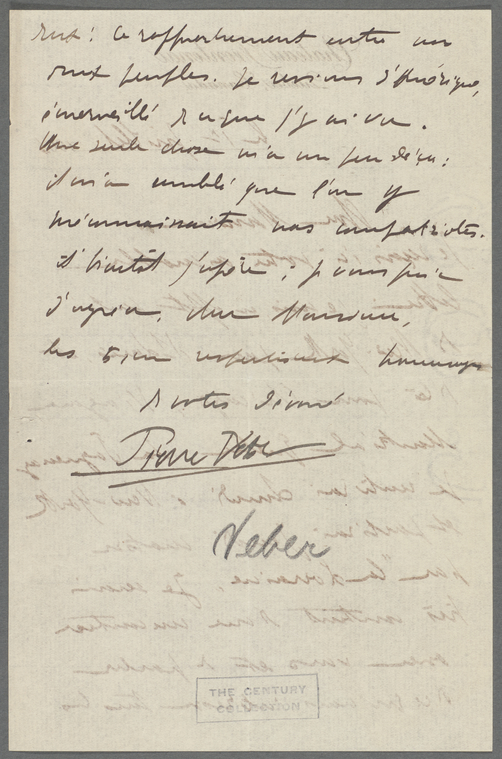 but! Ce rapprochement entre nos
deux peuples. Je reviens d'Amérique,
émerveillé de ce que j'y ai vu.
Une seule chose m'a un peu déçu :
il m'a semblé que l'on y
méconnaissait nos compatriotes.
A bientôt j'espère ; je vous prie
d'agréer, cher Monsieur,
les bien respectueux hommages
de votre dévoué
Pierre Veber
Veber
THE CENTURY
COLLECTION